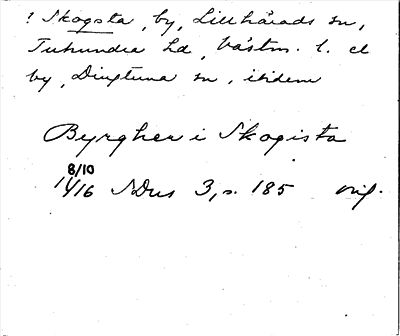 ? Skogsta, by, Lillhärads sn,
Tuhundra hd, Västm. l. el
by, Dingtuna sn, ibidem
Byrgher i Skogista
8/10
1416 SDns 3, s. 185 orig.